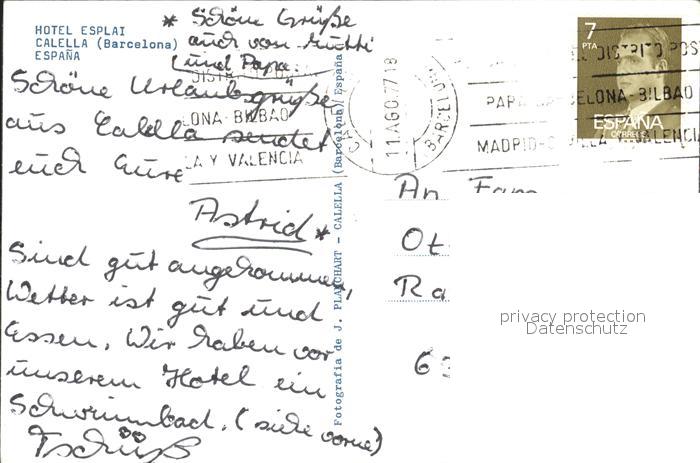 HOTEL ESPLAI
CALELLA (Barcelona)
ESPAÑA
* Schöne Grüße
auch von Mutti
und Papa.
Schöne Urlaubsgrüße
aus Calella sendet
euch Eure
Astrid *
Sind gut angekommen,
Wetter ist gut und
Essen. Wir haben vor
unserem Hotel ein
Schwimmbad. (siehe vorne)
Tschüß
Fotografía de J. PLANCHART - CALELLA (Barcelona) España
LONA-BILBAO
LA Y VALENCIA
11 AGO. 77 18
BARCELONA
DISTRITO POST
PAPA BARCELONA-BILBAO
MADRID-SEVILLA Y VALENCIA
7
PTA
ESPAÑA
CORREOS
An Fam
Ot
Ra
6
privacy protection
Datenschutz